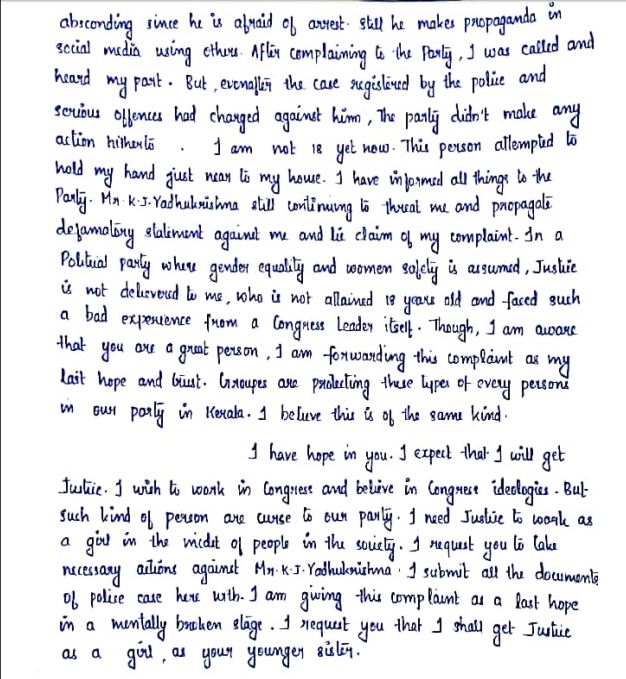 absconding since he is afraid of arrest. still he makes propaganda in
social media using others. After complaining to the Party, I was called and
heard my part. But, evenafter the case registered by the police and
serious offences had charged against himm, The party didn't make any
action hitherto . I am not 18 yet now. This person attempted to
hold my hand just near to my house. I have informed all things to the
Party. Mr. K.J. Yadhukrishna still continuing to threat me and propagate
defamatory statement against me and lie claim of my complaint. In a
Political party where gender equality and women safety is assumed, Justice
is not delievered to me, who is not attained 18 years old and faced such
a bad experience from a Congress Leader itself. Though, I am aware
that you are a great person, I am forwarding this complaint as my
last hope and trust. Groupes are protecting these types of every persons
in our party in Kerala. I believe this is of the same kind.
I have hope in you. I expect that I will get
Justice. I wish to work in Congress and believe in Congress ideologies. But
such kind of person are curse to our party. I need Justice to work as
a girl in the midst of people in the society. I request you to take
necessary actions against Mr. K.J. Yadhukrishna. I submit all the documents
of police case here with. I am giving this complaint as a last hope
in a mentally broken stage. I request you that I shall get Justice
as a girl, as your younger sister.